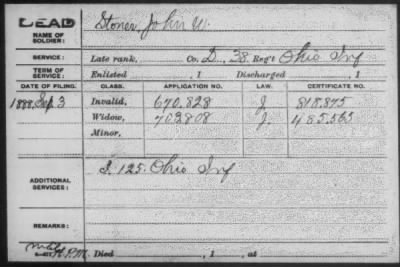 DEAD
NAME OF SOLDIER: Stoner, John W.
SERVICE: Late rank, Co. D., 38 Reg't Ohio Inf
TERM OF SERVICE: Enlisted , 1 Discharged , 1
DATE OF FILING. CLASS. APPLICATION NO. LAW. CERTIFICATE NO.
1888, Sep 3 Invalid, 670.828 J 818.875
Widow, 702808 J. 485.563
Minor,
ADDITIONAL SERVICES: I. 125. Ohio Inf
REMARKS:
Died , 1 , at